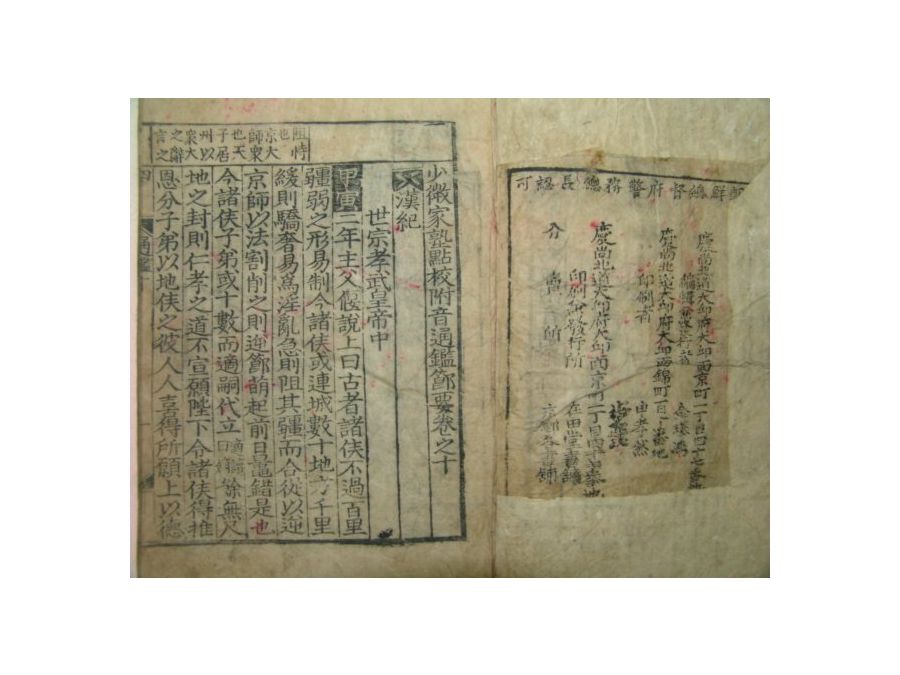 鮮總督府警務總長認可
慶尙北道大邱府大邱面京町一丁目四十七番地
編輯兼發行者
慶尙北道大邱府大邱面錦町一目
番地
印刷者
慶尙北道大邱府大邱面京町一丁目四十七番地
印刷兼發行所
在田堂書鋪
分賣所
少微家塾點校附音通鑑節要卷之十
漢紀
世宗孝武皇帝中
甲寅二年主父偃說上曰古者諸侯不過百里
疆弱之形易制今諸侯或連城數十地方千里
緩則驕奢易爲淫亂急則阻其疆而合從以逆
京師以法割削之則逆節萌起前日鼂錯是也
今諸侯子弟或十數而適嗣代立餘無尺
地之封則仁孝之道不宣願陛下令諸侯得推
恩分子弟以地侯之彼人人喜得所願上以德
阻恃
也
京大
師衆
也天
子居
州以
衆大
之辭
言之
通鑑十